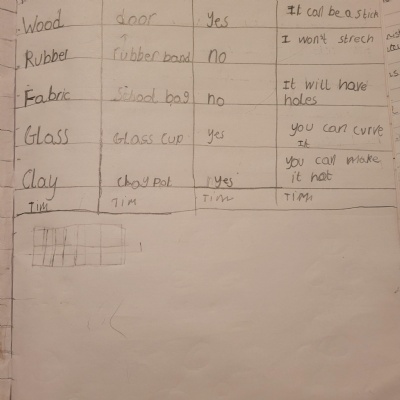 Wood door yes It can be a stick
Rubber rubber band no I won't strech
Fabric School bag no It will have
holes
Glass Glass cup yes you can curve
it
Clay Clay Pot yes you can make
it hot
TIM TIM TIM TIM